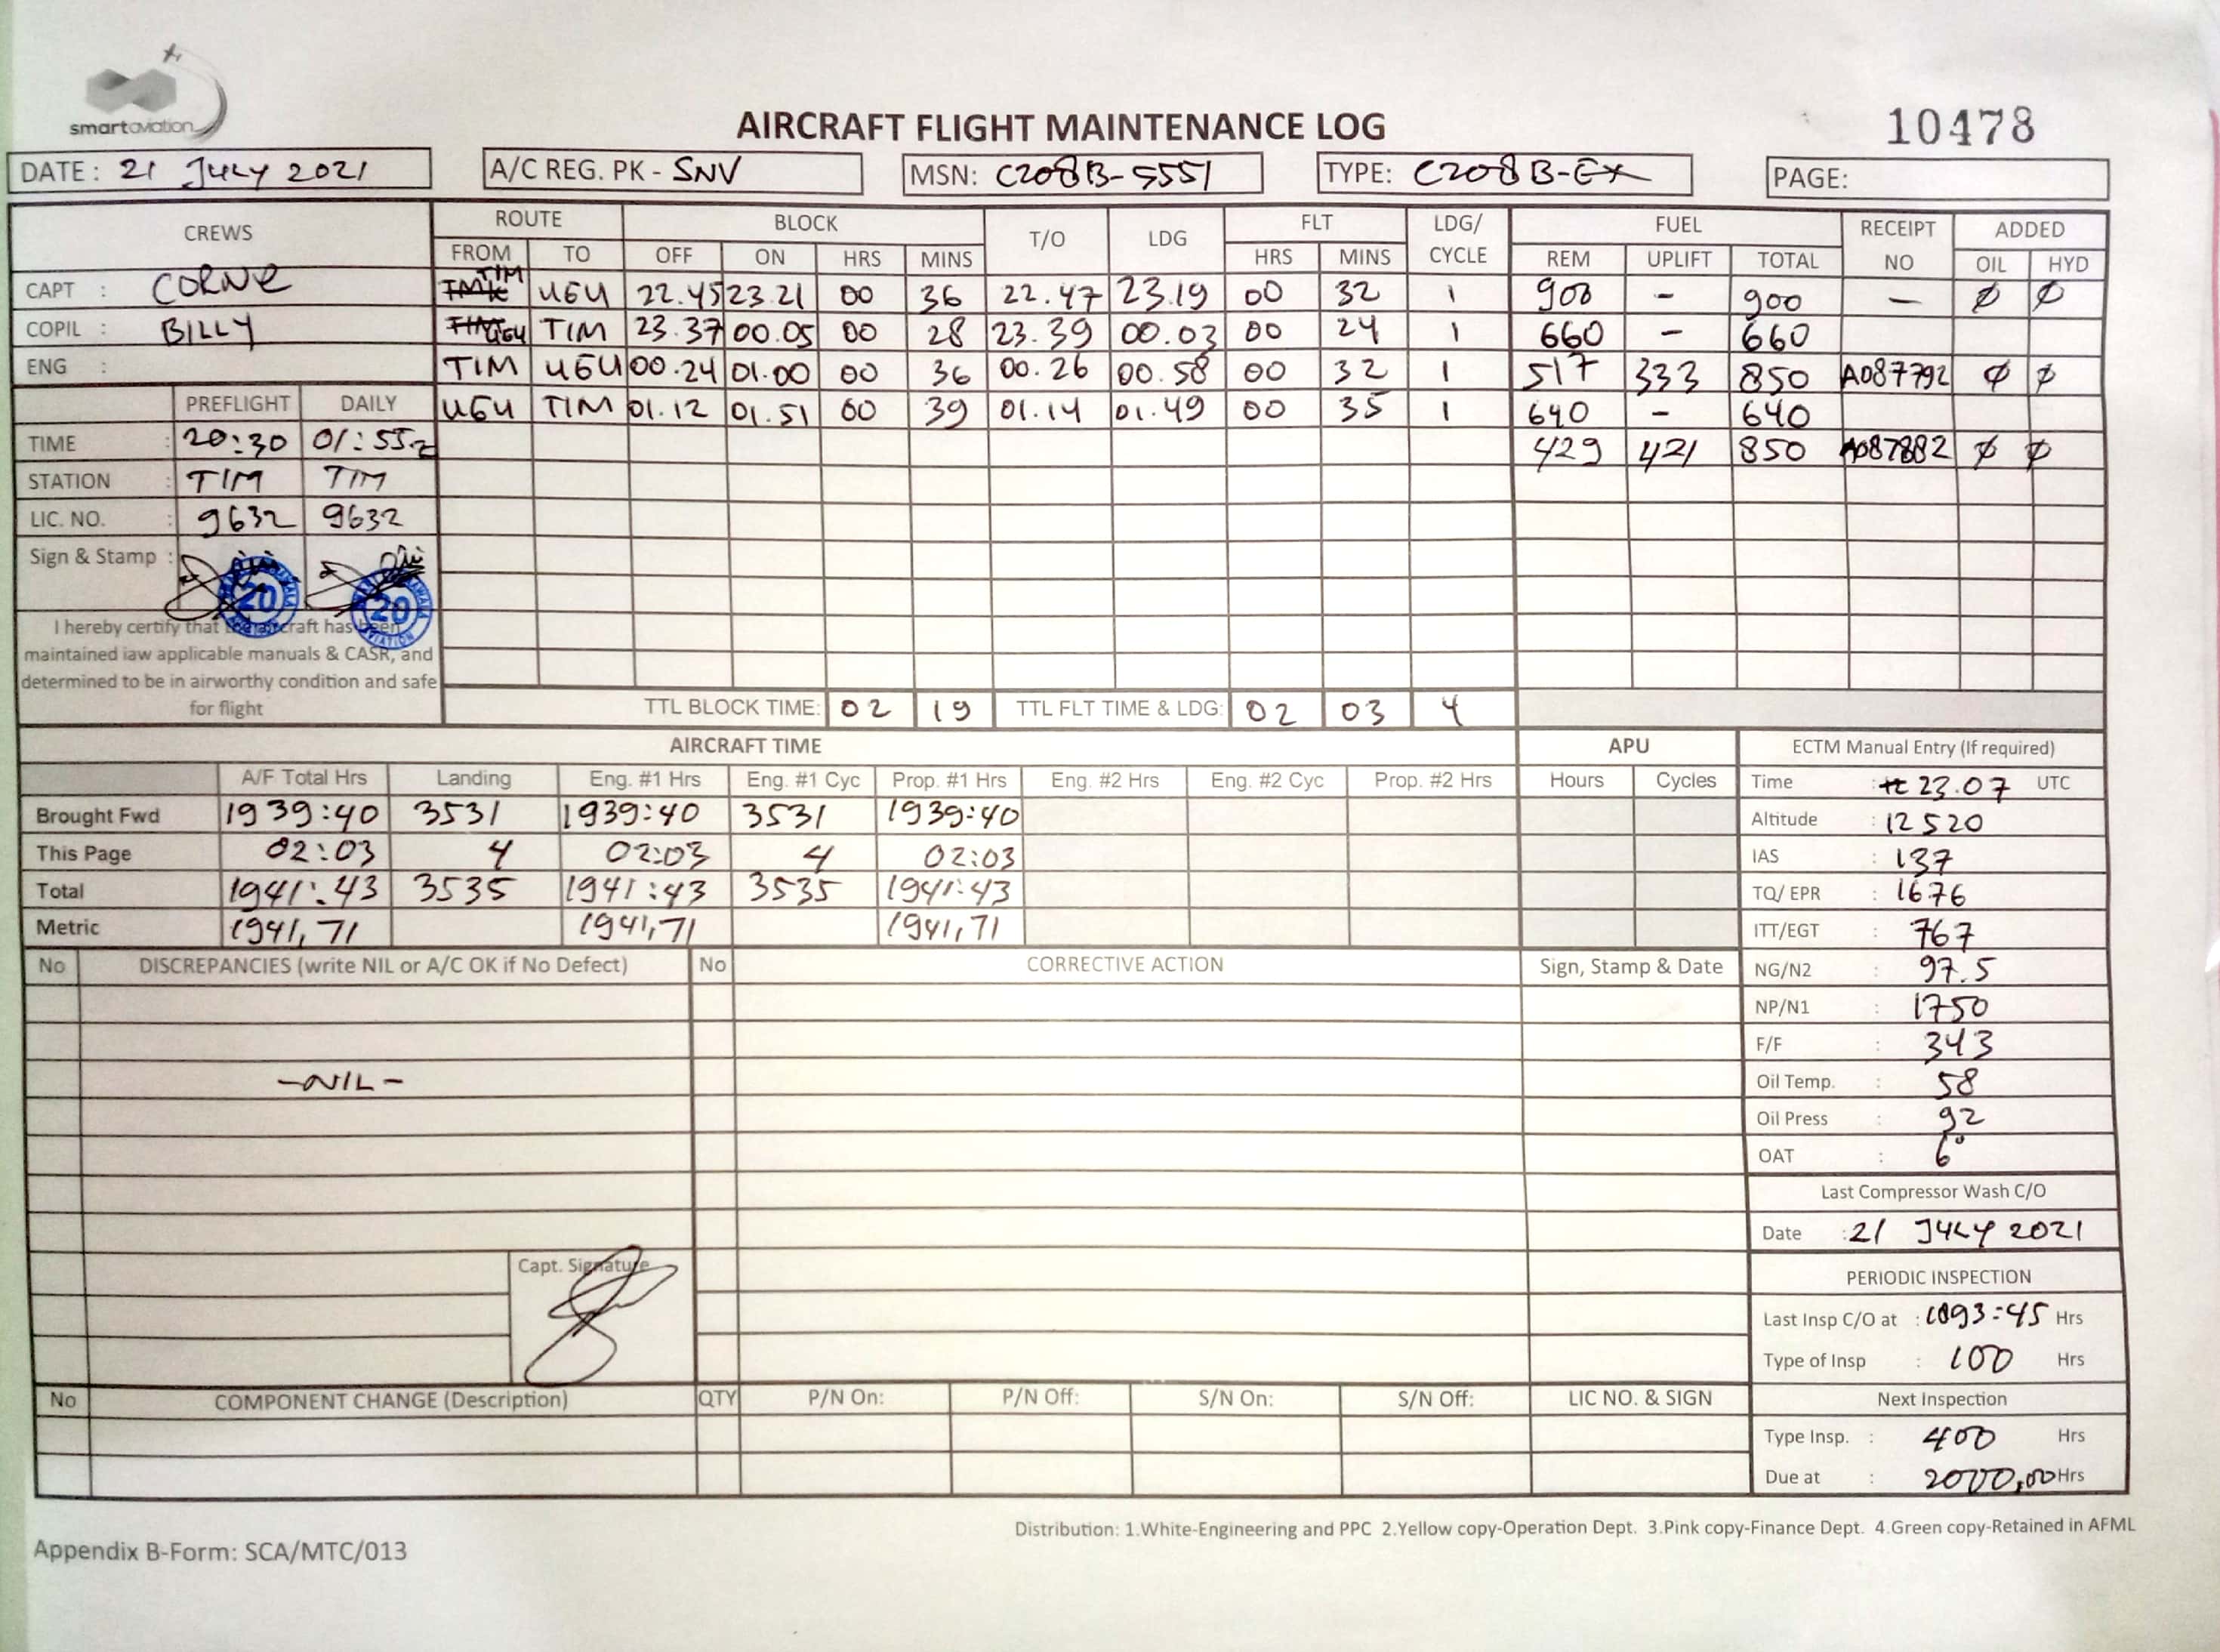 smartaviation
AIRCRAFT FLIGHT MAINTENANCE LOG
10478
DATE : 21 JULY 2021 A/C REG. PK - SNV MSN: C208B-5551 TYPE: C208B-EX PAGE:
CREWS ROUTE BLOCK T/O LDG FLT LDG/ CYCLE FUEL RECEIPT NO ADDED
FROM TO OFF ON HRS MINS HRS MINS REM UPLIFT TOTAL OIL HYD
CAPT : CORNE TIM UGU 22.45 23.21 00 36 22.47 23.19 00 32 1 900 - 900 - ∅ ∅
COPIL : BILLY UGU TIM 23.37 00.05 00 28 23.39 00.03 00 24 1 660 - 660
ENG : TIM UGU 00.24 01.00 00 36 00.26 00.58 00 32 1 517 333 850 A087792 ∅ ∅
PREFLIGHT DAILY UGU TIM 01.12 01.51 00 39 01.14 01.49 00 35 1 640 - 640
TIME : 20:30 01:55z 429 421 850 A087882 ∅ ∅
STATION : TIM TIM
LIC. NO. : 9632 9632
Sign & Stamp :
20 20
I hereby certify that the aircraft has been
maintained iaw applicable manuals & CASR, and
determined to be in airworthy condition and safe
for flight
TTL BLOCK TIME: 02 19 TTL FLT TIME & LDG: 02 03 4
AIRCRAFT TIME APU ECTM Manual Entry (If required)
A/F Total Hrs Landing Eng. #1 Hrs Eng. #1 Cyc Prop. #1 Hrs Eng. #2 Hrs Eng. #2 Cyc Prop. #2 Hrs Hours Cycles Time : 23.07 UTC
Brought Fwd 1939:40 3531 1939:40 3531 1939:40 Altitude : 12520
This Page 02:03 4 02:03 4 02:03 IAS : 137
Total 1941:43 3535 1941:43 3535 1941:43 TQ/ EPR : 1676
Metric 1941,71 1941,71 1941,71 ITT/EGT : 767
No DISCREPANCIES (write NIL or A/C OK if No Defect) No CORRECTIVE ACTION Sign, Stamp & Date NG/N2 : 97.5
NP/N1 : 1750
F/F : 343
-NIL- Oil Temp. : 58
Oil Press : 92
OAT : 6°
Last Compressor Wash C/O
Date : 21 JULY 2021
Capt. Signature
PERIODIC INSPECTION
Last Insp C/O at : 1893:45 Hrs
Type of Insp : 100 Hrs
No COMPONENT CHANGE (Description) QTY P/N On: P/N Off: S/N On: S/N Off: LIC NO. & SIGN Next Inspection
Type Insp. : 400 Hrs
Due at : 2000,00 Hrs
Distribution: 1.White-Engineering and PPC 2.Yellow copy-Operation Dept. 3.Pink copy-Finance Dept. 4.Green copy-Retained in AFML
Appendix B-Form: SCA/MTC/013